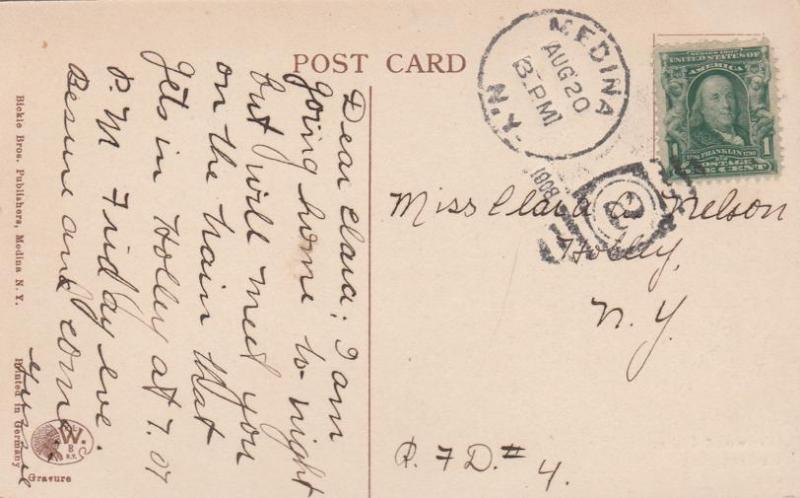 POST CARD
MEDINA
AUG 20
3 PM
N.Y.
1908
2
SERIES 1902
UNITED STATES OF
AMERICA
FRANKLIN
POSTAGE
1 1
ONE CENT
Dear Clara; I am
going home to-night
but will meet you
on the train that
gets in Holley at 7.07
P.M Friday eve.
Besure and come.
Miss Clara A. Nelson
Holley,
N. Y.
R. F D. # 4.
Bickle Bros. Publishers, Medina N. Y.
Printed in Germany
W.
N.Y.
Gravure